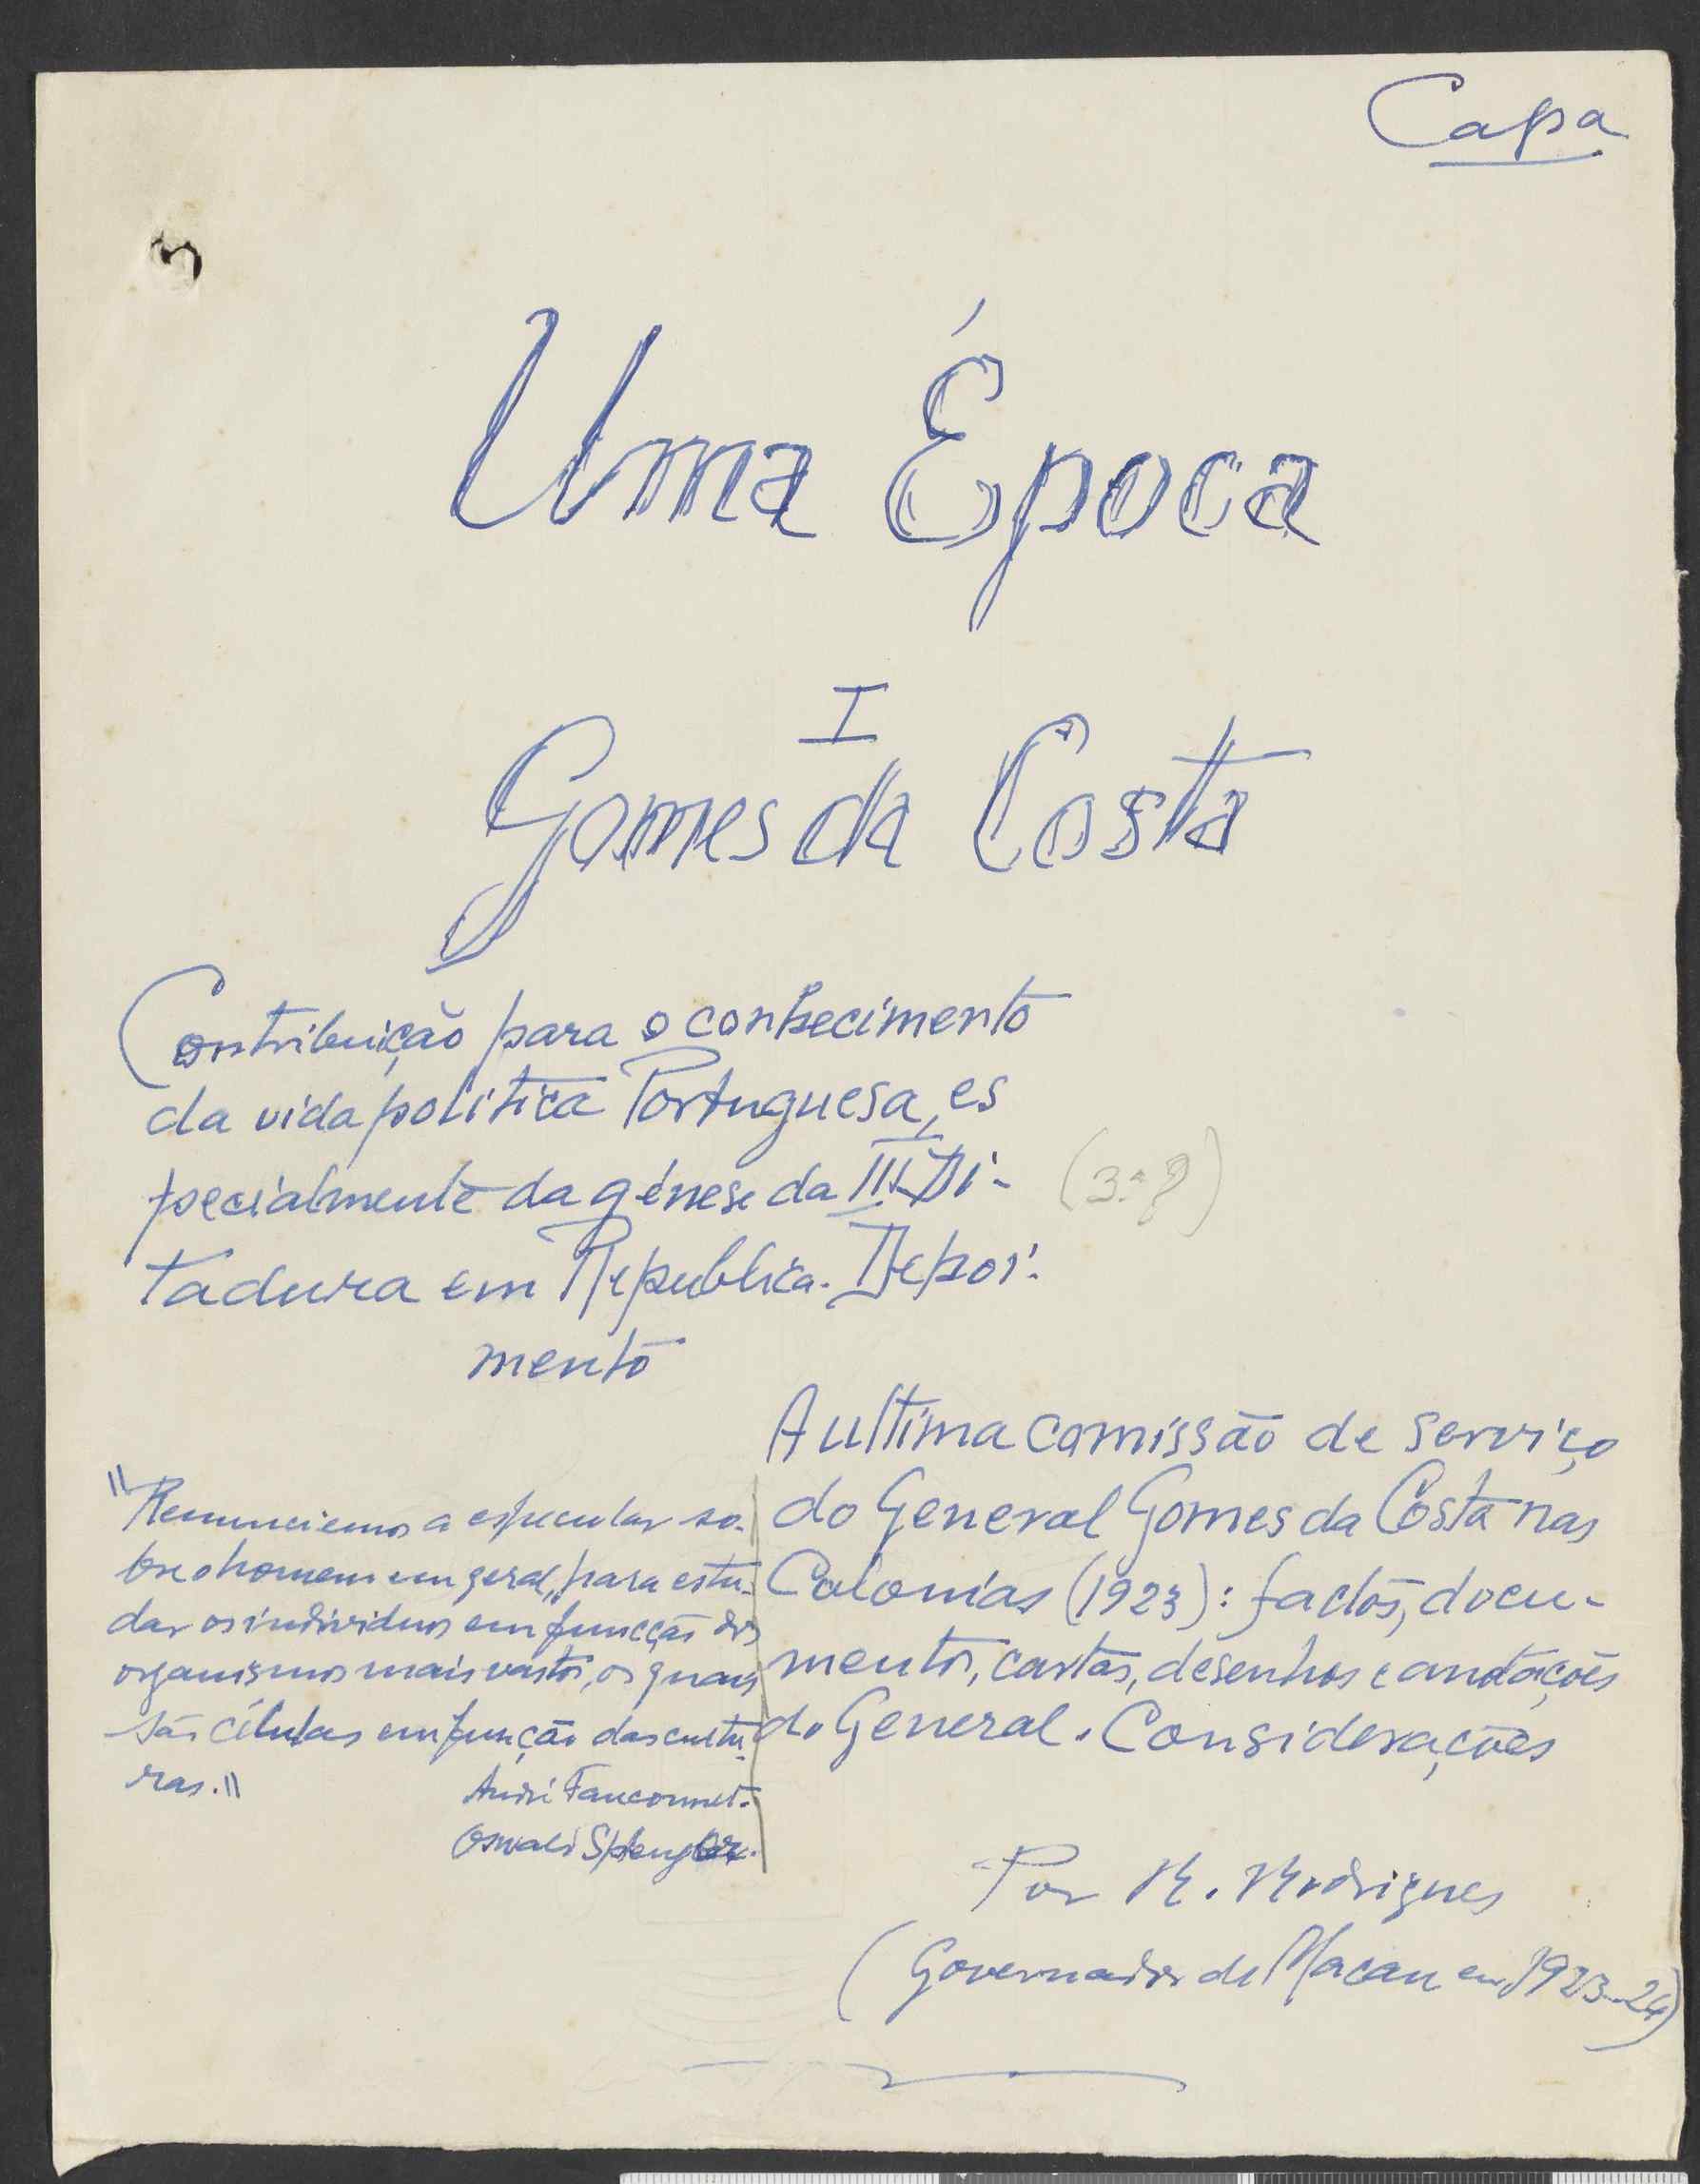 Capa
Uma Época
I
Gomes da Costa
Contribuição para o conhecimento
da vida politica Portuguesa, es
pecialmente da génese da III Di-
(3.ª?)
tadura em Republica. Depoi-
mento
"Renunciemos a especular so-
bre o homem em geral, para estu-
dar os individuos em funcção dos
organismos mais vastos, os quais
são células em função das cultu-
ras."
André Fauconnet.
Oswald Spengler.
A ultima comissão de serviço
do General Gomes da Costa nas
Colonias (1923): factos, docu-
mentos, cartas, desenhos e anotações
do General. Considerações
Por R. Rodrigues
(Governador de Macau em 1923-24)